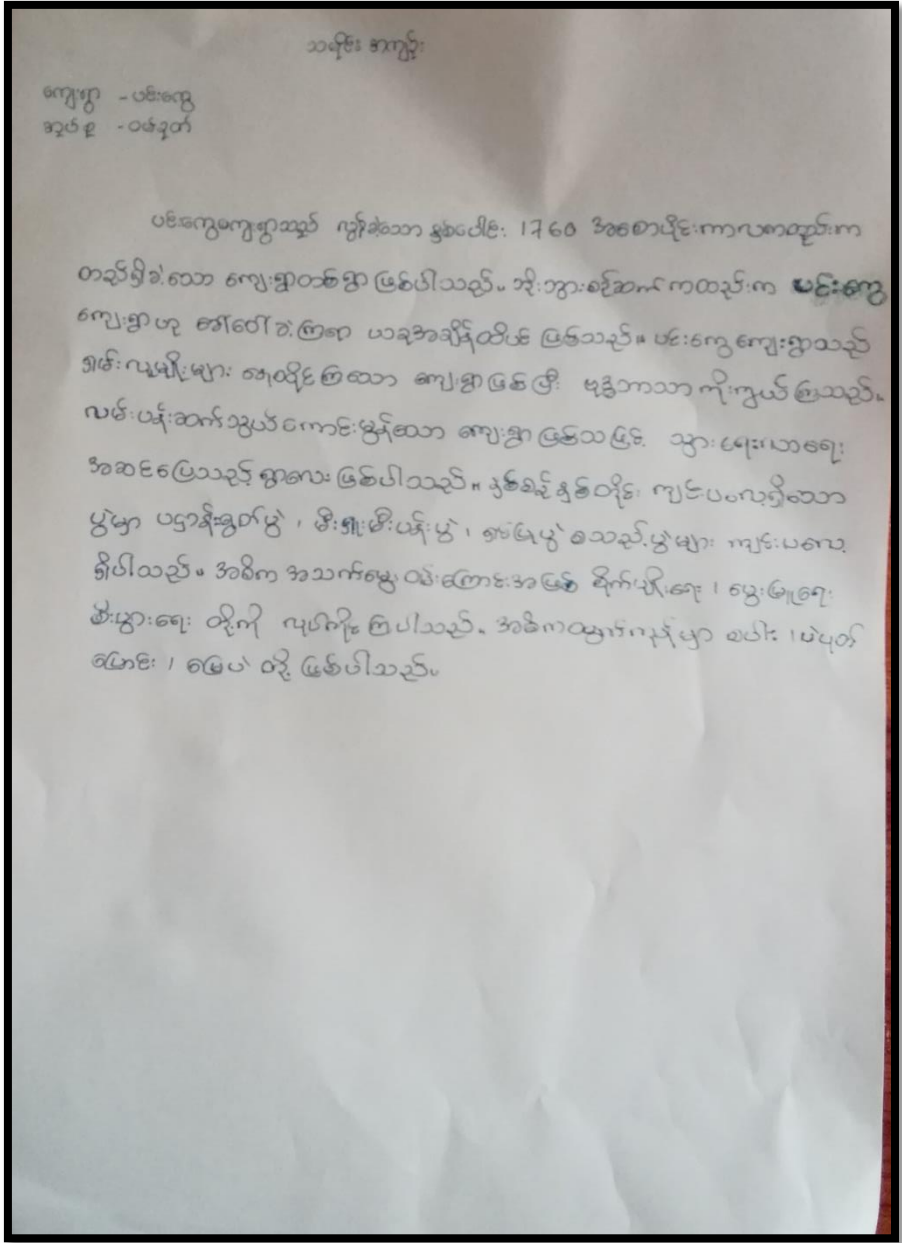 သမိုင်း အကျဉ်း
ကျေးရွာ - ပင်းကွေ
အုပ်စု - ဝမ်ဒုတ်
ပင်းကွေကျေးရွာသည် လွန်ခဲ့သော နှစ်ပေါင်း 1760 အစောပိုင်းကာလစတည်းက
တည်ရှိခဲ့သော ကျေးရွာတစ်ရွာ ဖြစ်ပါသည်။ ဘိုးဘွားစဉ်ဆက် ကတည်းက ပင်းကွေ
ကျေးရွာဟု ခေါ်ဝေါ်ခဲ့ကြရာ ယခုအချိန်ထိပင် ဖြစ်သည်။ ပင်းကွေကျေးရွာသည်
ရှမ်းလူမျိုးများ နေထိုင်ကြသော ကျေးရွာဖြစ်ပြီး ဗုဒ္ဓဘာသာကိုးကွယ်ကြသည်။
လမ်းပန်းဆက်သွယ်ကောင်းမွန်သော ကျေးရွာ ဖြစ်သဖြင့် သွားရေးလာရေး
အဆင်ပြေသည့် ရွာလေး ဖြစ်ပါသည်။ နှစ်စဉ်နှစ်တိုင်း ကျင်းပလေ့ရှိသော
ပွဲမှာ ပဌာန်းရွတ်ပွဲ ၊ မီးရှူးမီးပန်းပွဲ ၊ စသည့်ပွဲများ ကျင်းပလေ့
ရှိပါသည်။ အဓိက အသက်မွေးဝမ်းကြောင်းအဖြစ် စိုက်ပျိုးရေး ၊ မွေးမြူရေး
စီးပွားရေး တို့ကို လုပ်ကိုင်ကြပါသည်။ အဓိကထွက်ကုန်မှာ စပါး ၊ ပဲပုတ်
ပြောင်း ၊ မြေပဲ တို့ ဖြစ်ပါသည်။